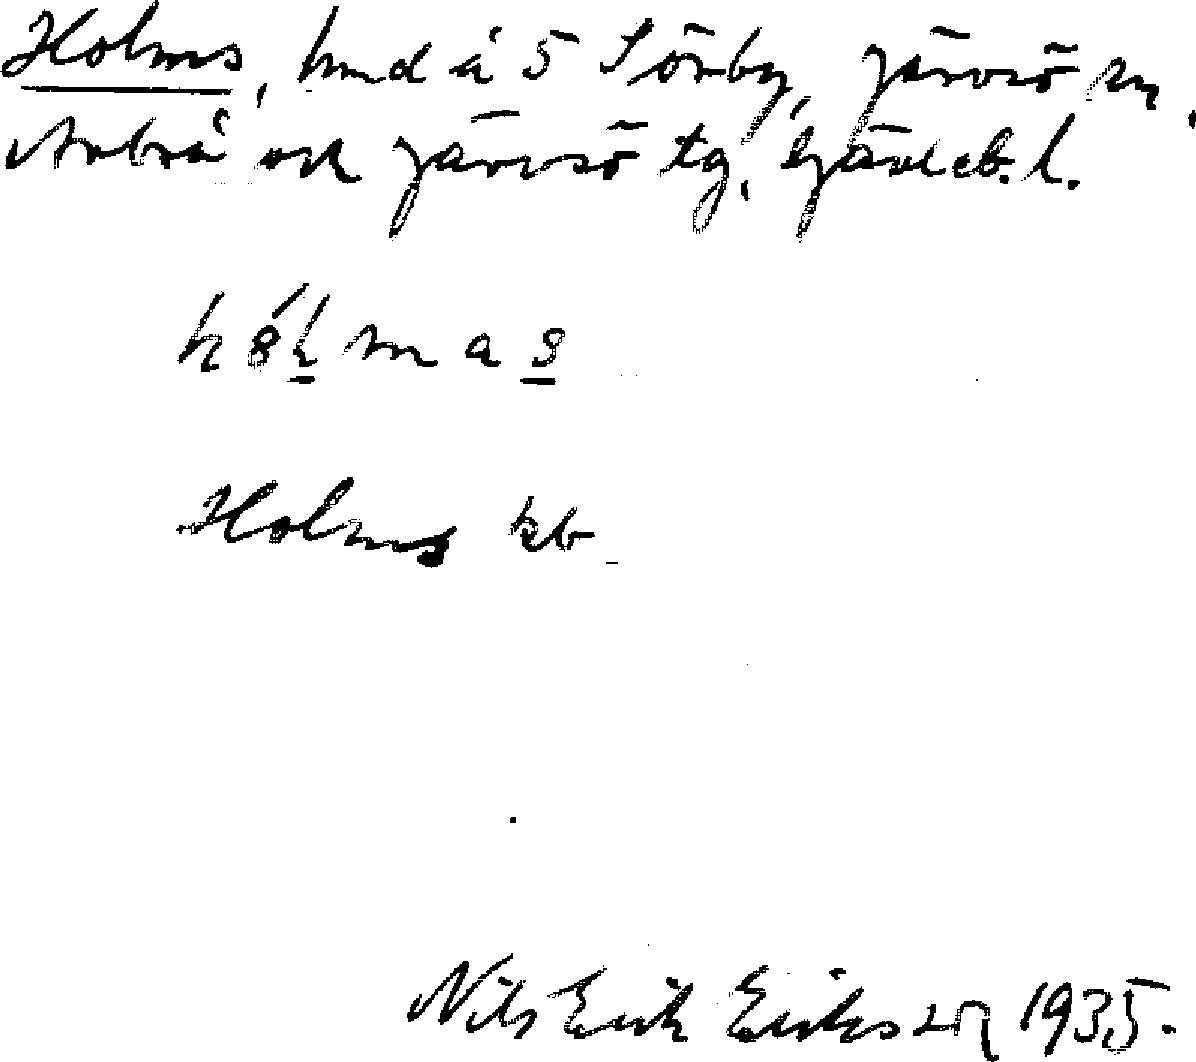 Holms, hmd å 5 Sörby, Järvsö sn,
Arbrå och Järvsö tg, Gävleb. l.
Holms kb
Nils Erik Eriksson 1935.